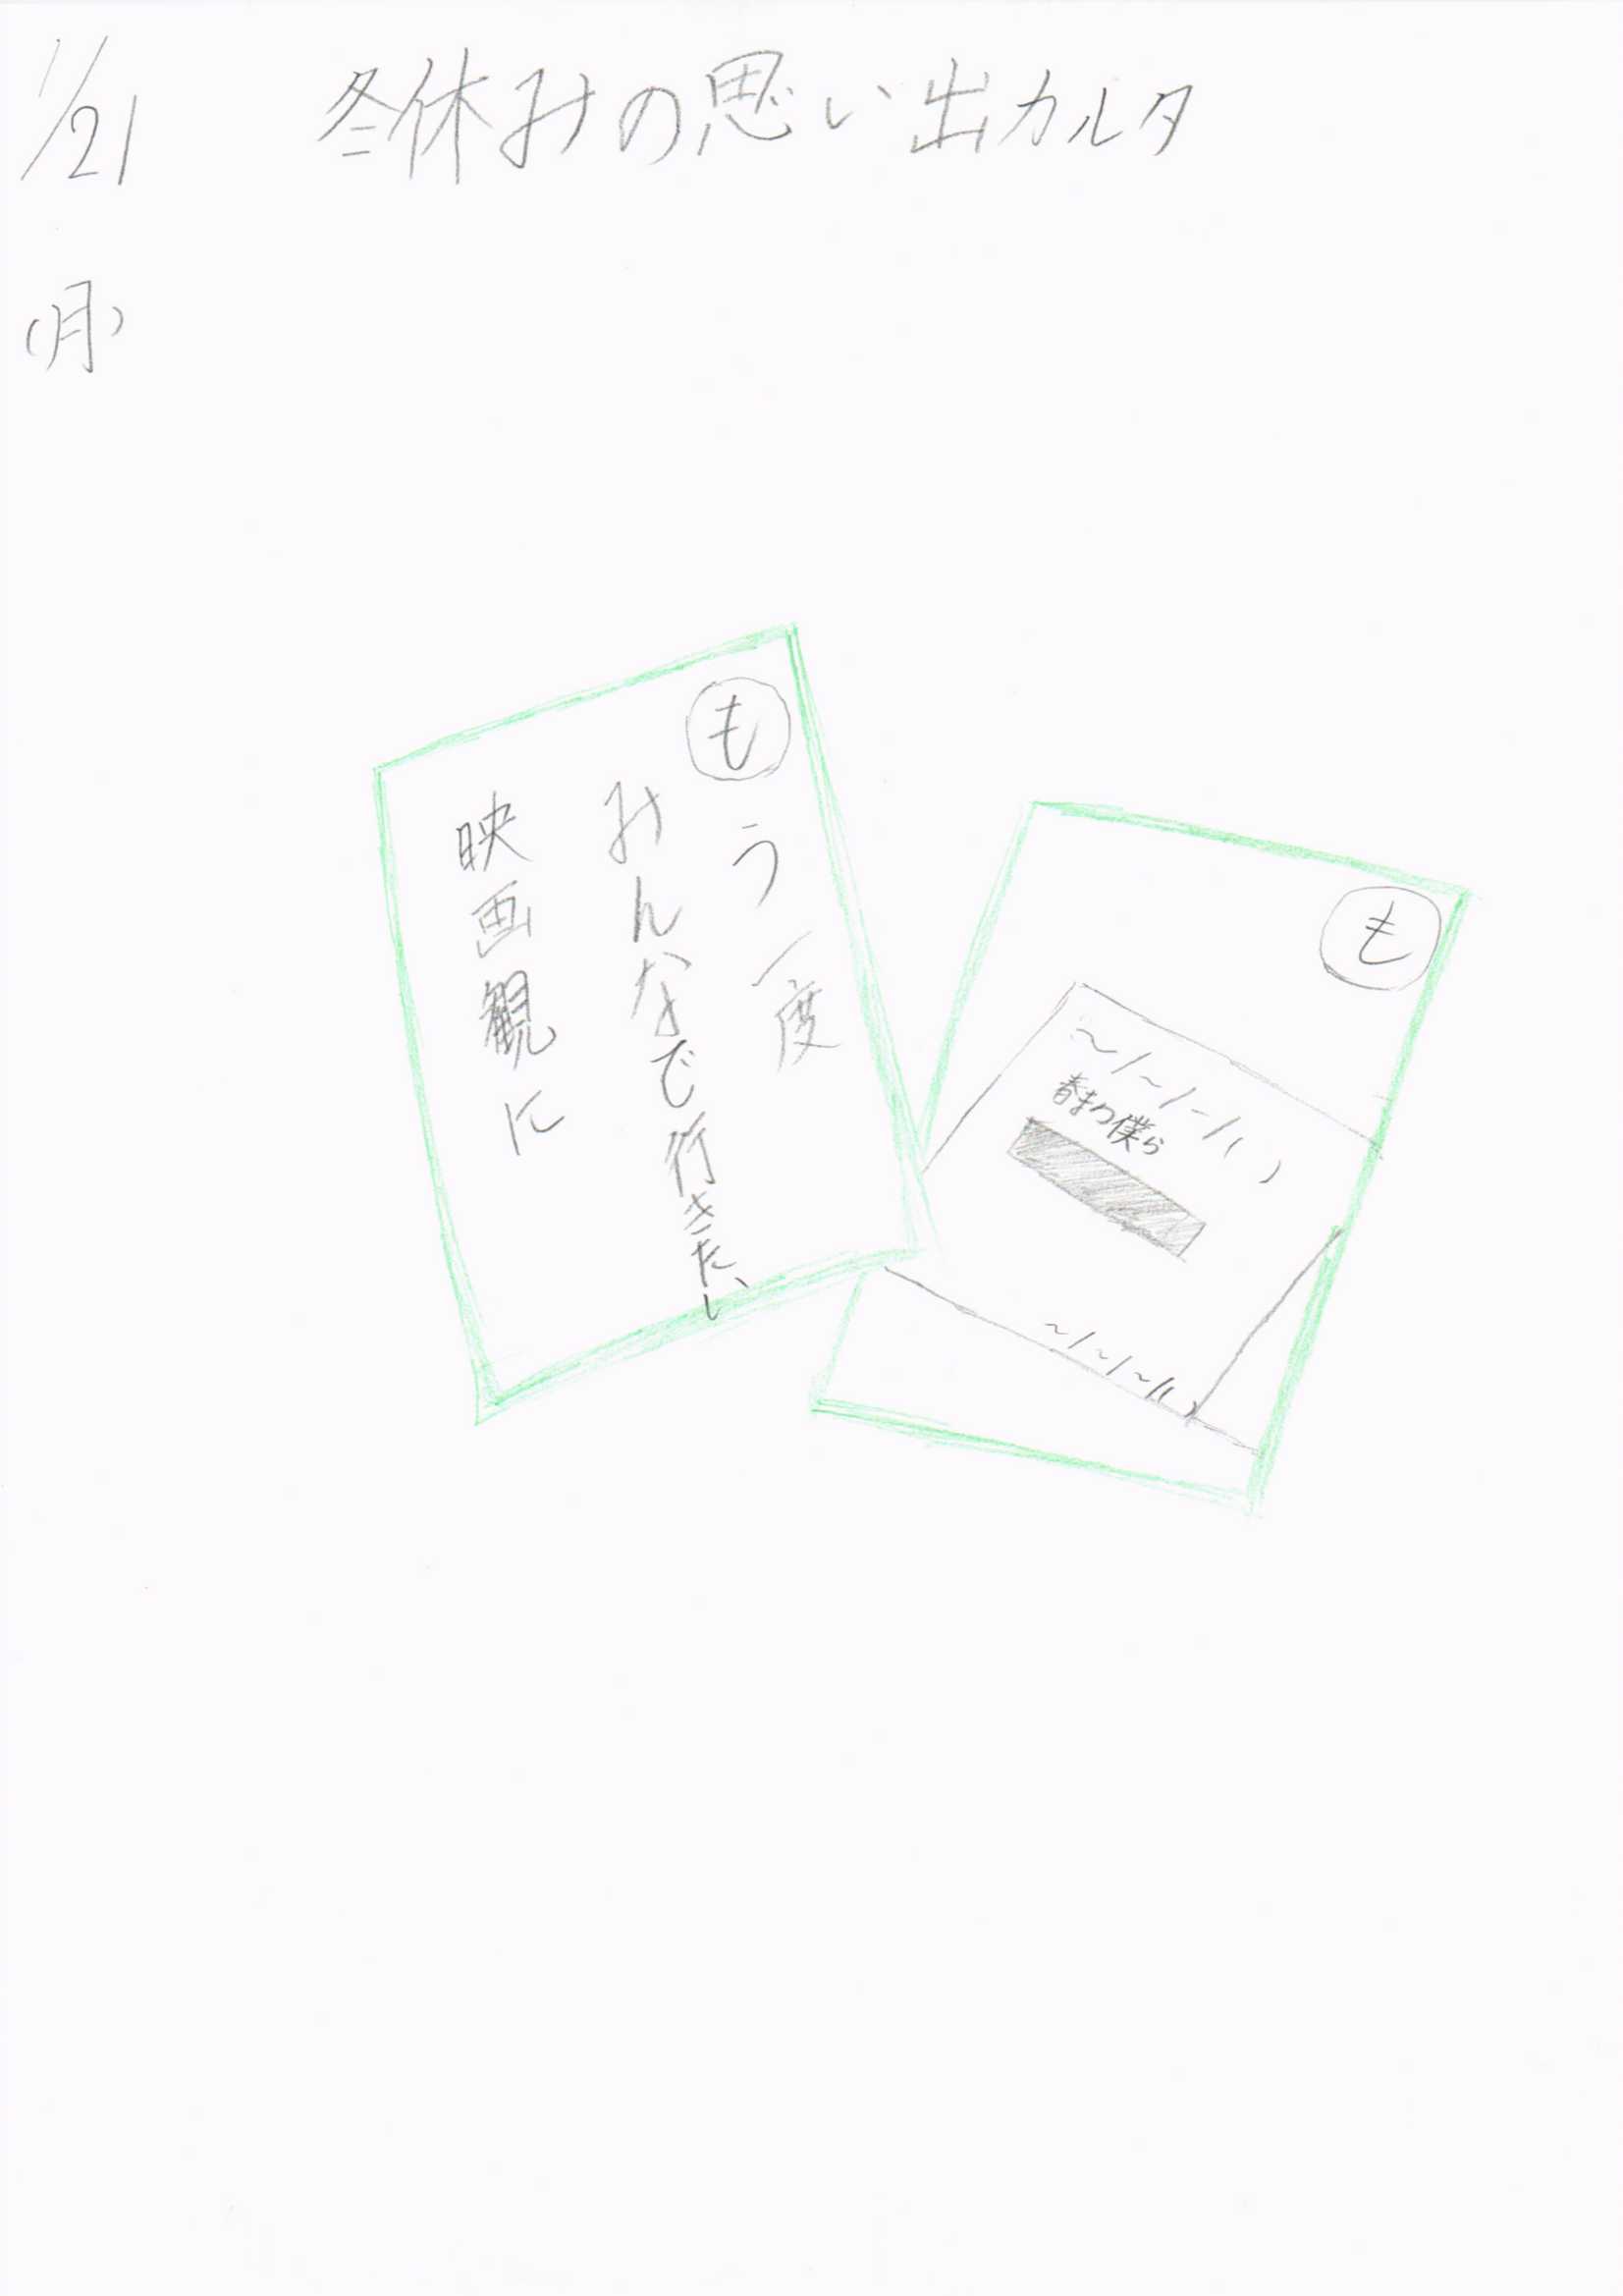 1/21
(月)
冬休みの思い出カルタ
もう一度
みんなで行きたい
映画観に
も
春まつ僕ら